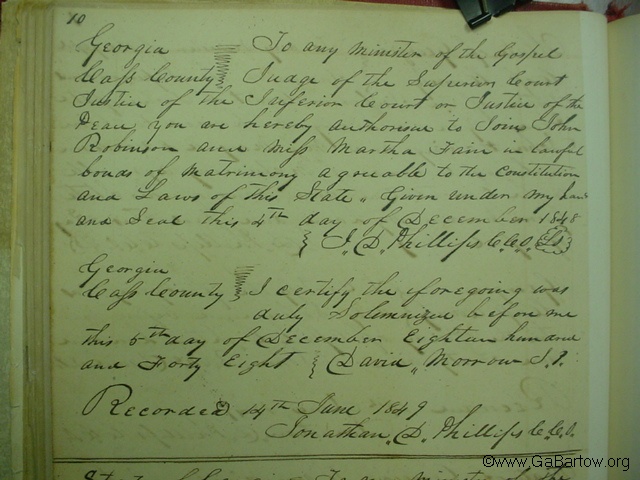 10
Georgia To any minister of the Gospel
Cass County Judge of the Superior Court
Justice of the Inferior Court or Justice of the
Peace you are hereby authorise to Join John
Robinson and miss Martha Fain in lawful
bonds of matrimony agreeable to the constitution
and Laws of this State „ Given under my hand
and Seal this 4th day of December 1848
J. D. Phillips C.C.O. Ls
Georgia
Cass County I certify the foregoing was
duly Solemnized before me
this 5th day of December Eighteen hundred
and Forty Eight David „ Morrow J.P.
Recorded 14th June 1849
Jonathan. D. Phillips C.C.O.
©www.GaBartow.org